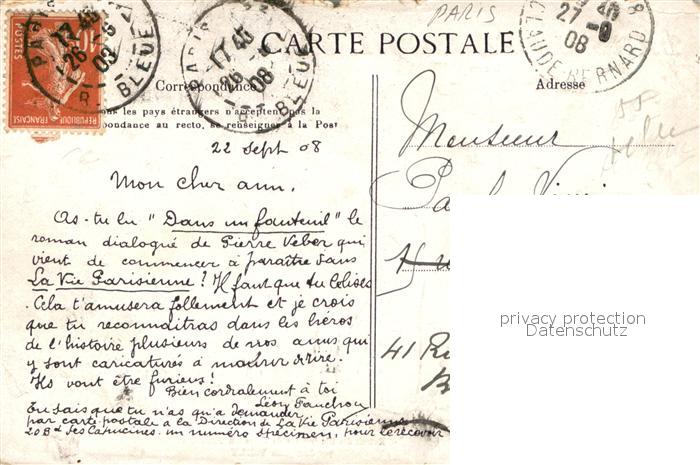 PARIS
CARTE POSTALE
17 45
26
08
R. BLEUE
17 45
26
08
R. BLEUE
27
08
CLAUDE BERNARD
10
POSTES
REPUBLIQUE FRANÇAISE
Correspondance
Adresse
les pays étrangers n'acceptent pas la
pondance au recto, se renseigner à la Post
22 sept 08
Mon cher ami,
As-tu lu "Dans un fauteuil" le
roman dialogué de Pierre Veber qui
vient de commencer à paraître dans
La Vie Parisienne? Il faut que tu le lises
Cela t'amusera follement et je crois
que tu reconnaitras dans les héros
de l'histoire plusieurs de nos amis qui
y sont caricaturés à mourir de rire.
Ils vont être furieux!
Bien cordialement à toi
Léon Fauchon
Tu sais que tu n'as qu'à demander
par carte postale à la Direction de La Vie Parisienne
20 Bd des Capucines un numéro spécimen, pour le recevoir
Monsieur
41 R
privacy protection
Datenschutz